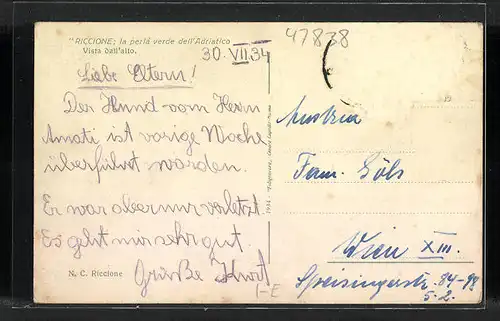 "RICCIONE: la perla verde dell'Adriatico
Vista dall'alto.
30. VII. 34
47838
Liebe Eltern!
Der Hund vom Herrn
Amati ist vorige Woche
überführt worden.
Er war aber nur verletzt.
Es geht mir sehr gut.
Grüße Kurt
N. C. Riccione
I-E
Austria
Fam. Göls
Wien XIII.
Speisingerstr. 84-98
5. 2.